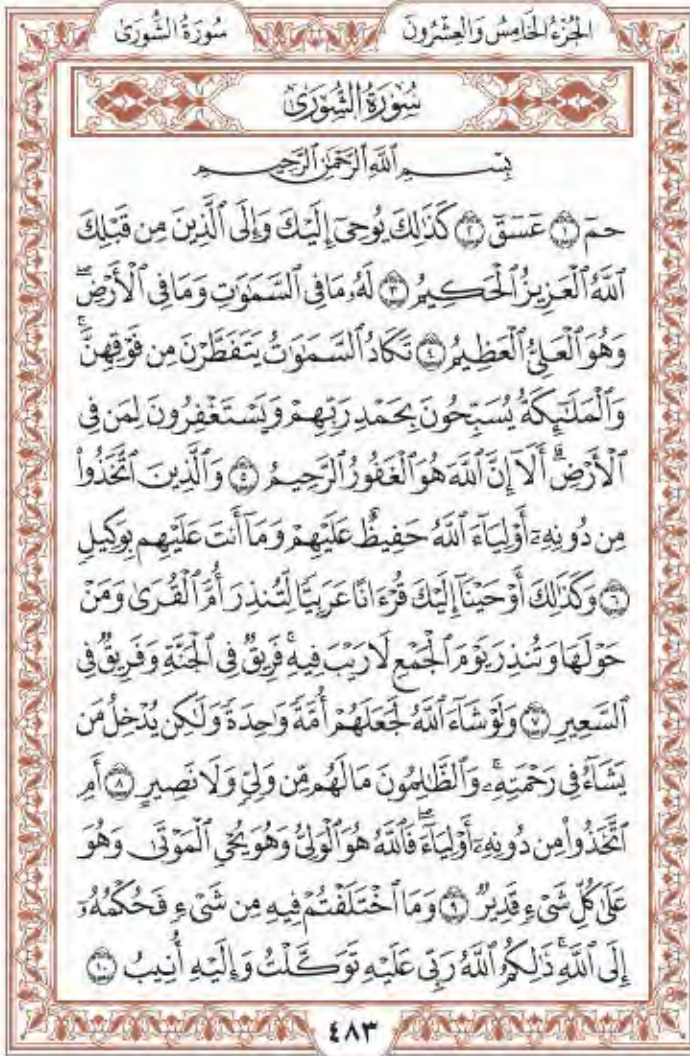 الجُزْءُ الخَامِسُ وَالعِشْرُونَ
سُورَةُ الشُّورَىٰ
سُورَةُ الشُّورَىٰ
بِسْمِ ٱللَّهِ ٱلرَّحْمَٰنِ ٱلرَّحِيمِ
حمٓ ١ عٓسٓقٓ ٢ كَذَٰلِكَ يُوحِىٓ إِلَيْكَ وَإِلَى ٱلَّذِينَ مِن قَبْلِكَ
ٱللَّهُ ٱلْعَزِيزُ ٱلْحَكِيمُ ٣ لَهُۥ مَا فِى ٱلسَّمَٰوَٰتِ وَمَا فِى ٱلْأَرْضِۖ
وَهُوَ ٱلْعَلِىُّ ٱلْعَظِيمُ ٤ تَكَادُ ٱلسَّمَٰوَٰتُ يَتَفَطَّرْنَ مِن فَوْقِهِنَّۚ
وَٱلْمَلَٰٓئِكَةُ يُسَبِّحُونَ بِحَمْدِ رَبِّهِمْ وَيَسْتَغْفِرُونَ لِمَن فِى
ٱلْأَرْضِۗ أَلَآ إِنَّ ٱللَّهَ هُوَ ٱلْغَفُورُ ٱلرَّحِيمُ ٥ وَٱلَّذِينَ ٱتَّخَذُواْ
مِن دُونِهِۦٓ أَوْلِيَآءَ ٱللَّهُ حَفِيظٌ عَلَيْهِمْ وَمَآ أَنتَ عَلَيْهِم بِوَكِيلٍ
٦ وَكَذَٰلِكَ أَوْحَيْنَآ إِلَيْكَ قُرْءَانًا عَرَبِيًّا لِّتُنذِرَ أُمَّ ٱلْقُرَىٰ وَمَنْ
حَوْلَهَا وَتُنذِرَ يَوْمَ ٱلْجَمْعِ لَا رَيْبَ فِيهِۚ فَرِيقٌ فِى ٱلْجَنَّةِ وَفَرِيقٌ فِى
ٱلسَّعِيرِ ٧ وَلَوْ شَآءَ ٱللَّهُ لَجَعَلَهُمْ أُمَّةً وَٰحِدَةً وَلَٰكِن يُدْخِلُ مَن
يَشَآءُ فِى رَحْمَتِهِۦۚ وَٱلظَّٰلِمُونَ مَا لَهُم مِّن وَلِىٍّ وَلَا نَصِيرٍ ٨ أَمِ
ٱتَّخَذُواْ مِن دُونِهِۦٓ أَوْلِيَآءَۖ فَٱللَّهُ هُوَ ٱلْوَلِىُّ وَهُوَ يُحْىِ ٱلْمَوْتَىٰ وَهُوَ
عَلَىٰ كُلِّ شَىْءٍ قَدِيرٌ ٩ وَمَا ٱخْتَلَفْتُمْ فِيهِ مِن شَىْءٍ فَحُكْمُهُۥٓ
إِلَى ٱللَّهِۚ ذَٰلِكُمُ ٱللَّهُ رَبِّى عَلَيْهِ تَوَكَّلْتُ وَإِلَيْهِ أُنِيبُ ١٠
٤٨٣